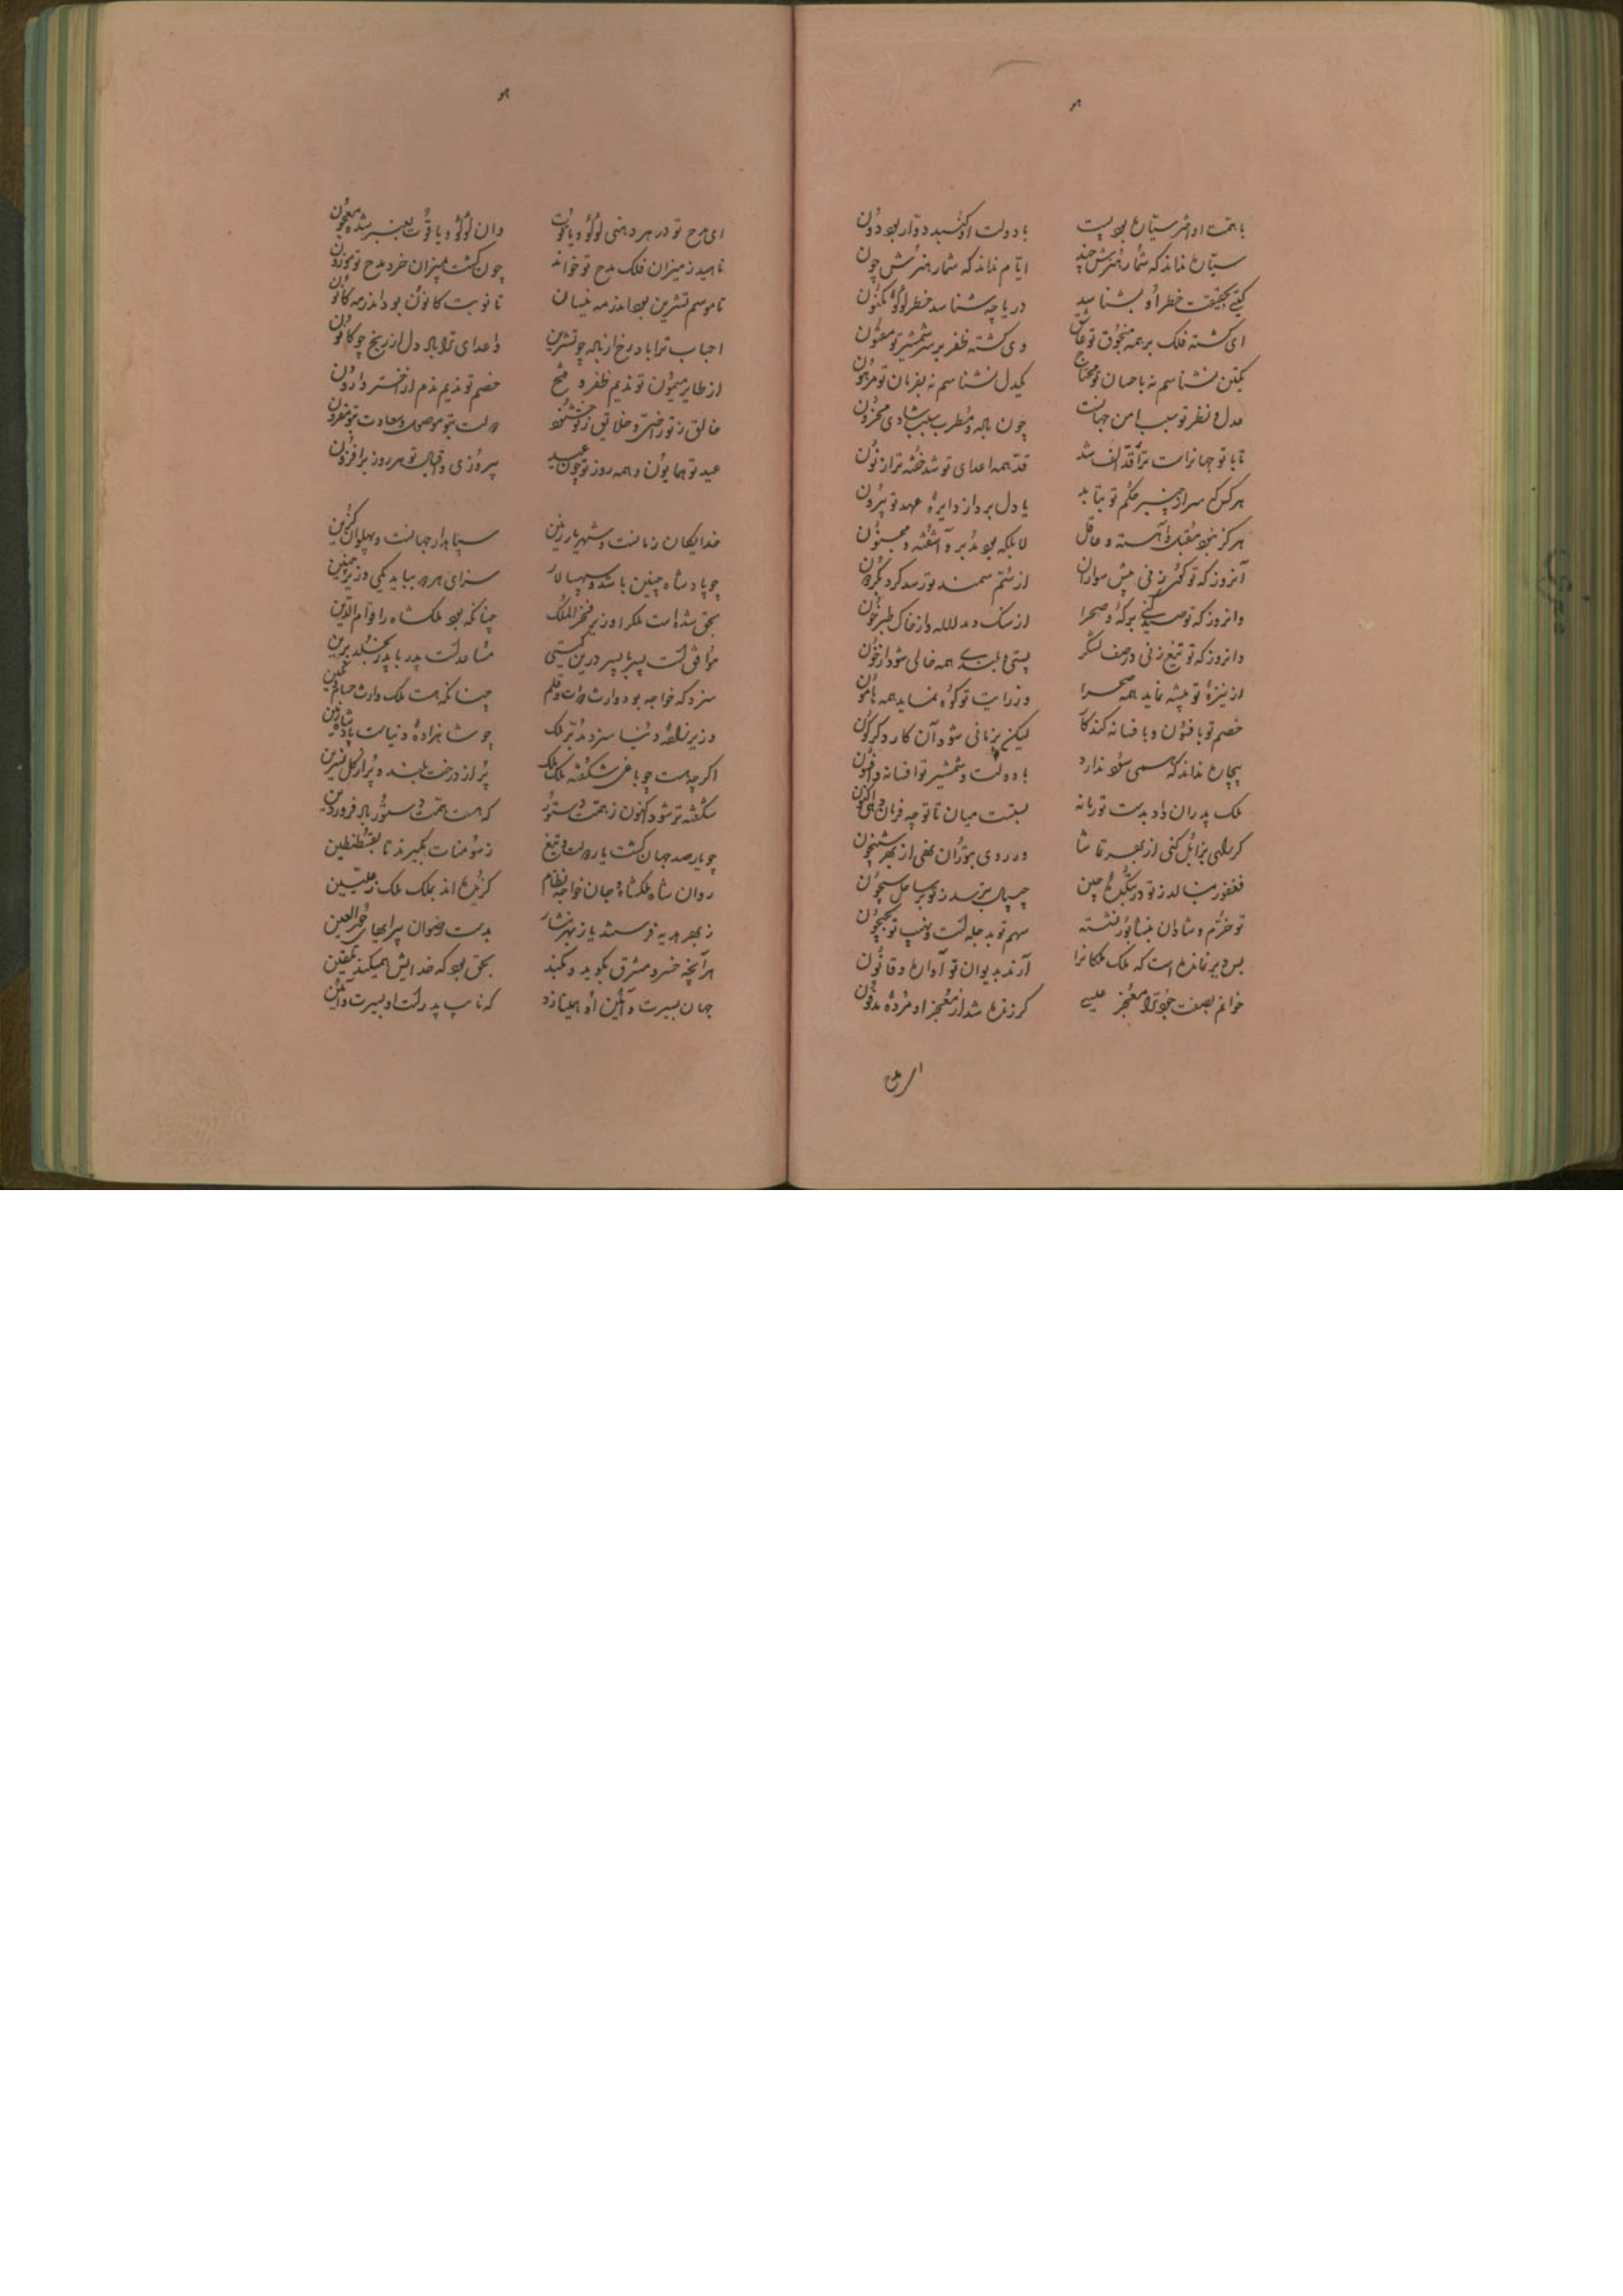 با همت او اختر سیاره بود پست
با دولت او گنبد دوار بود دون
سیاره نداند که شمار هنرش چند
ایام نداند که شمار هنرش چون
گیتی بحقیقت خطر او بشناسد
دریا چه شناسد خطر لؤلؤ مکنون
ای گشته فلک بر همه منجوق تو عاشق
وی گشته ظفر بر سر شمشیر تو مفتون
یکتن نشناسم نه باحسان تو محتاج
یکدل نشناسم نه بفرمان تو مرهون
عدل و نظر تو سبب امن جهانست
چون باده و مطرب سبب شادی محزون
تا با تو جهان راست تر از قد الف شد
قد همه اعدای تو شد خفته تر از نون
هر کس که سر از چنبر حکم تو بتابد
یا دل برد از دایره عهد تو بیرون
هرگز نبود مقبل و آهسته و عاقل
لا بلکه بود مدبر و آشفته و مجنون
آنروز که تو گوی زنی پیش سواران
از سم سمند تو رسد گرد بگردون
وانروز که تو صید کنی برکه و صحرا
از سنگ دمد لاله و از خاک طبرخون
وانروز که تو تیغ زنی در صف لشکر
پستی و بلندی همه خالی شود از خون
از نیزه تو بیشه نماید همه صحرا
وز رایت تو کوه نماید همه هامون
خصم تو بافسون و بافسانه کند کار
لیکن بزمانی شود آن کار دگرگون
بیچاره نداند که همی سود ندارد
با دولت و شمشیر تو افسانه و افسون
ملک پدران داد بدست تو زمانه
بستست میان تا تو چه فرمان دهی اکنون
گر راهی بزابل کنی از بهر تماشا
ور روی بتوران نهی از بهر شبیخون
فغفور بنالد ز تو در بتکده چین
چیپال بترسد ز تو بر ساحل سیحون
تو خرم و شادان بنشابور نشسته
سهم تو بدجله است و نهیب تو بجیحون
بس دیر نماندست که ملک ملکانرا
آرند بدیوان تو آواره و قانون
خوانم بصفت جود ترا معجز عیسی
گر زنده شد از معجز او مرده مدفون
ای مدح تو در هر دهنی لؤلؤ و یاقوت
وان لؤلؤ و یاقوت بعنبر شده معجون
ناهید ز میزان فلک مدح تو خواند
چون گشت بمیزان خرد مدح تو موزون
تا موسم تشرین بود اندر مه نیسان
تا نوبت کانون بود اندر مه کانون
احباب ترا باد رخ از باده چو تشرین
واعدای ترا باد دل از رنج چو کانون
از طایر میمون تو ندیم ظفر و فتح
خصم تو ندیم ندم از اختر وارون
خالق ز تو راضی و خلایق ز تو خشنود
دولت بتو موصول و سعادت بتو مقرون
عید تو همایون و همه روز تو چون عید
پیروزی و اقبال تو هر روز برافزون
خدایگان زمانست و شهریار زمین
سپاهدار جهانست و پهلوان گزین
چو پادشاه چنین باشد و سپهسالار
سزای هر دو بباید یکی وزیر چنین
بحق شداست ملکرا وزیر فخر الملک
چنانکه بود ملکشاه را قوام الدین
موافق است پسر با پسر درین گیتی
مساعدست پدر با پدر بخلد برین
سزد که خواجه بود وارث دوات و قلم
چنانکه هست ملک وارث حسام و نگین
وزیرزاده دنیا سزد مدبر ملک
چو شاهزاده دنیاست پادشاه زمین
اگرچه هست چو باغی شکفته ملک ملک
پر از درخت بلند و پر از گل و نسرین
شکفته تر شود اکنون ز همت دستور
که هست همت دستور باد فروردین
چو یار صد جهان گشت یار دولت و تیغ
ز سومنات بگیرند تا بقسطنطین
روان شاه ملکشاه و جان خواجه نظام
گزیده اند بملک ملک ز علیین
ز بهر هدیه فرستند یا ز بهر نثار
بدست رضوان پیرایهای حور العین
هر آنچه خسرو مشرق بگوید و بکند
بحق بود که خدایش همیکند تلقین
جهان بسیرت و آیین او همینازد
که نایب پدرست او بسیرت و آیین